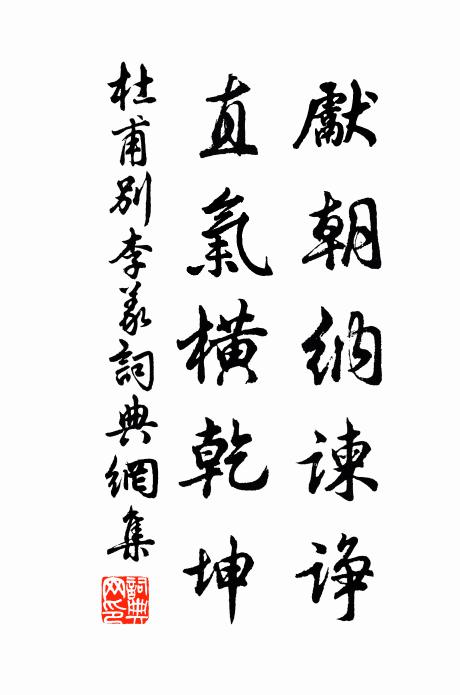 獻朝納諫諍
直氣橫乾坤
杜甫別李義詞典網集
詞典
网印